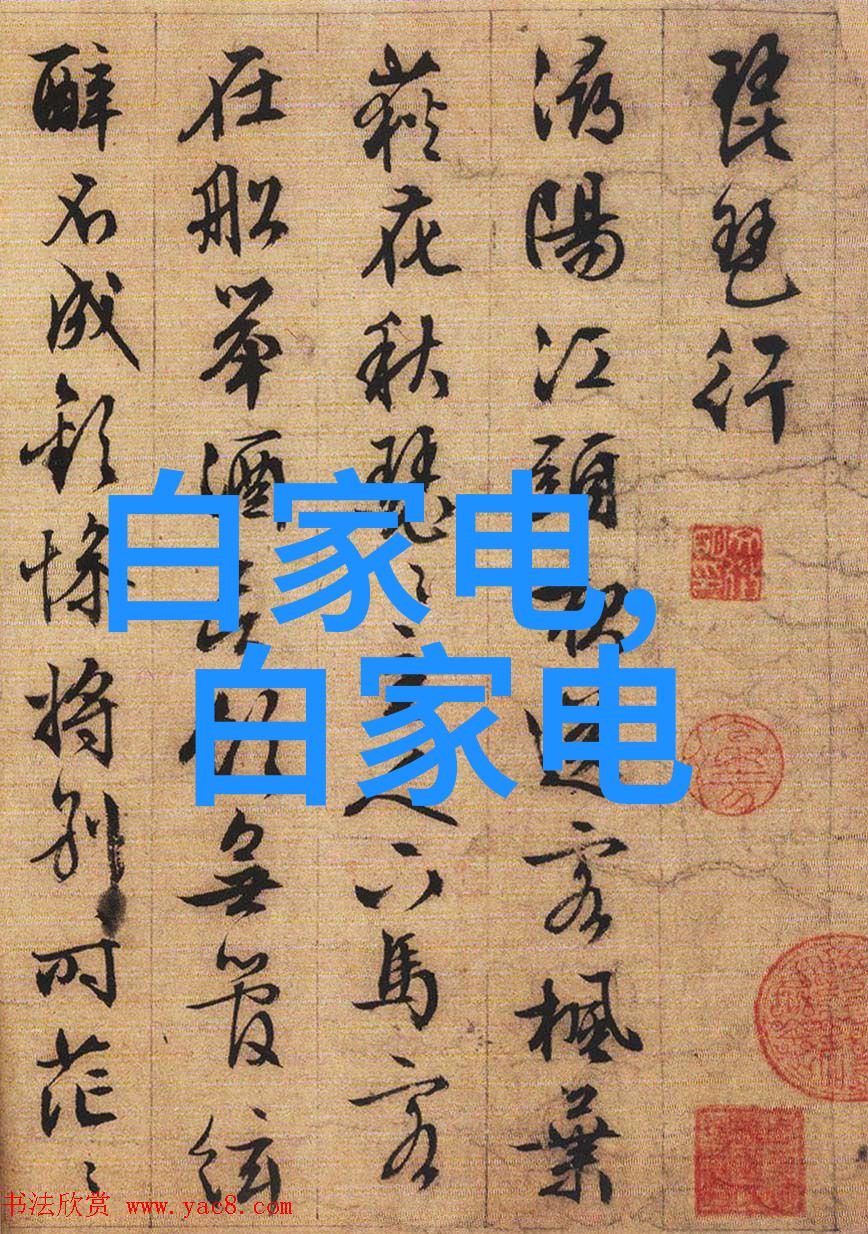 琵琶行
潯陽江頭夜送客楓葉
荻花秋瑟〻主人下馬客
在船舉酒欲飲無管絃
醉不成歡慘將別別時茫〻
白家电,
白家电
书法欣赏 www.yac8.com